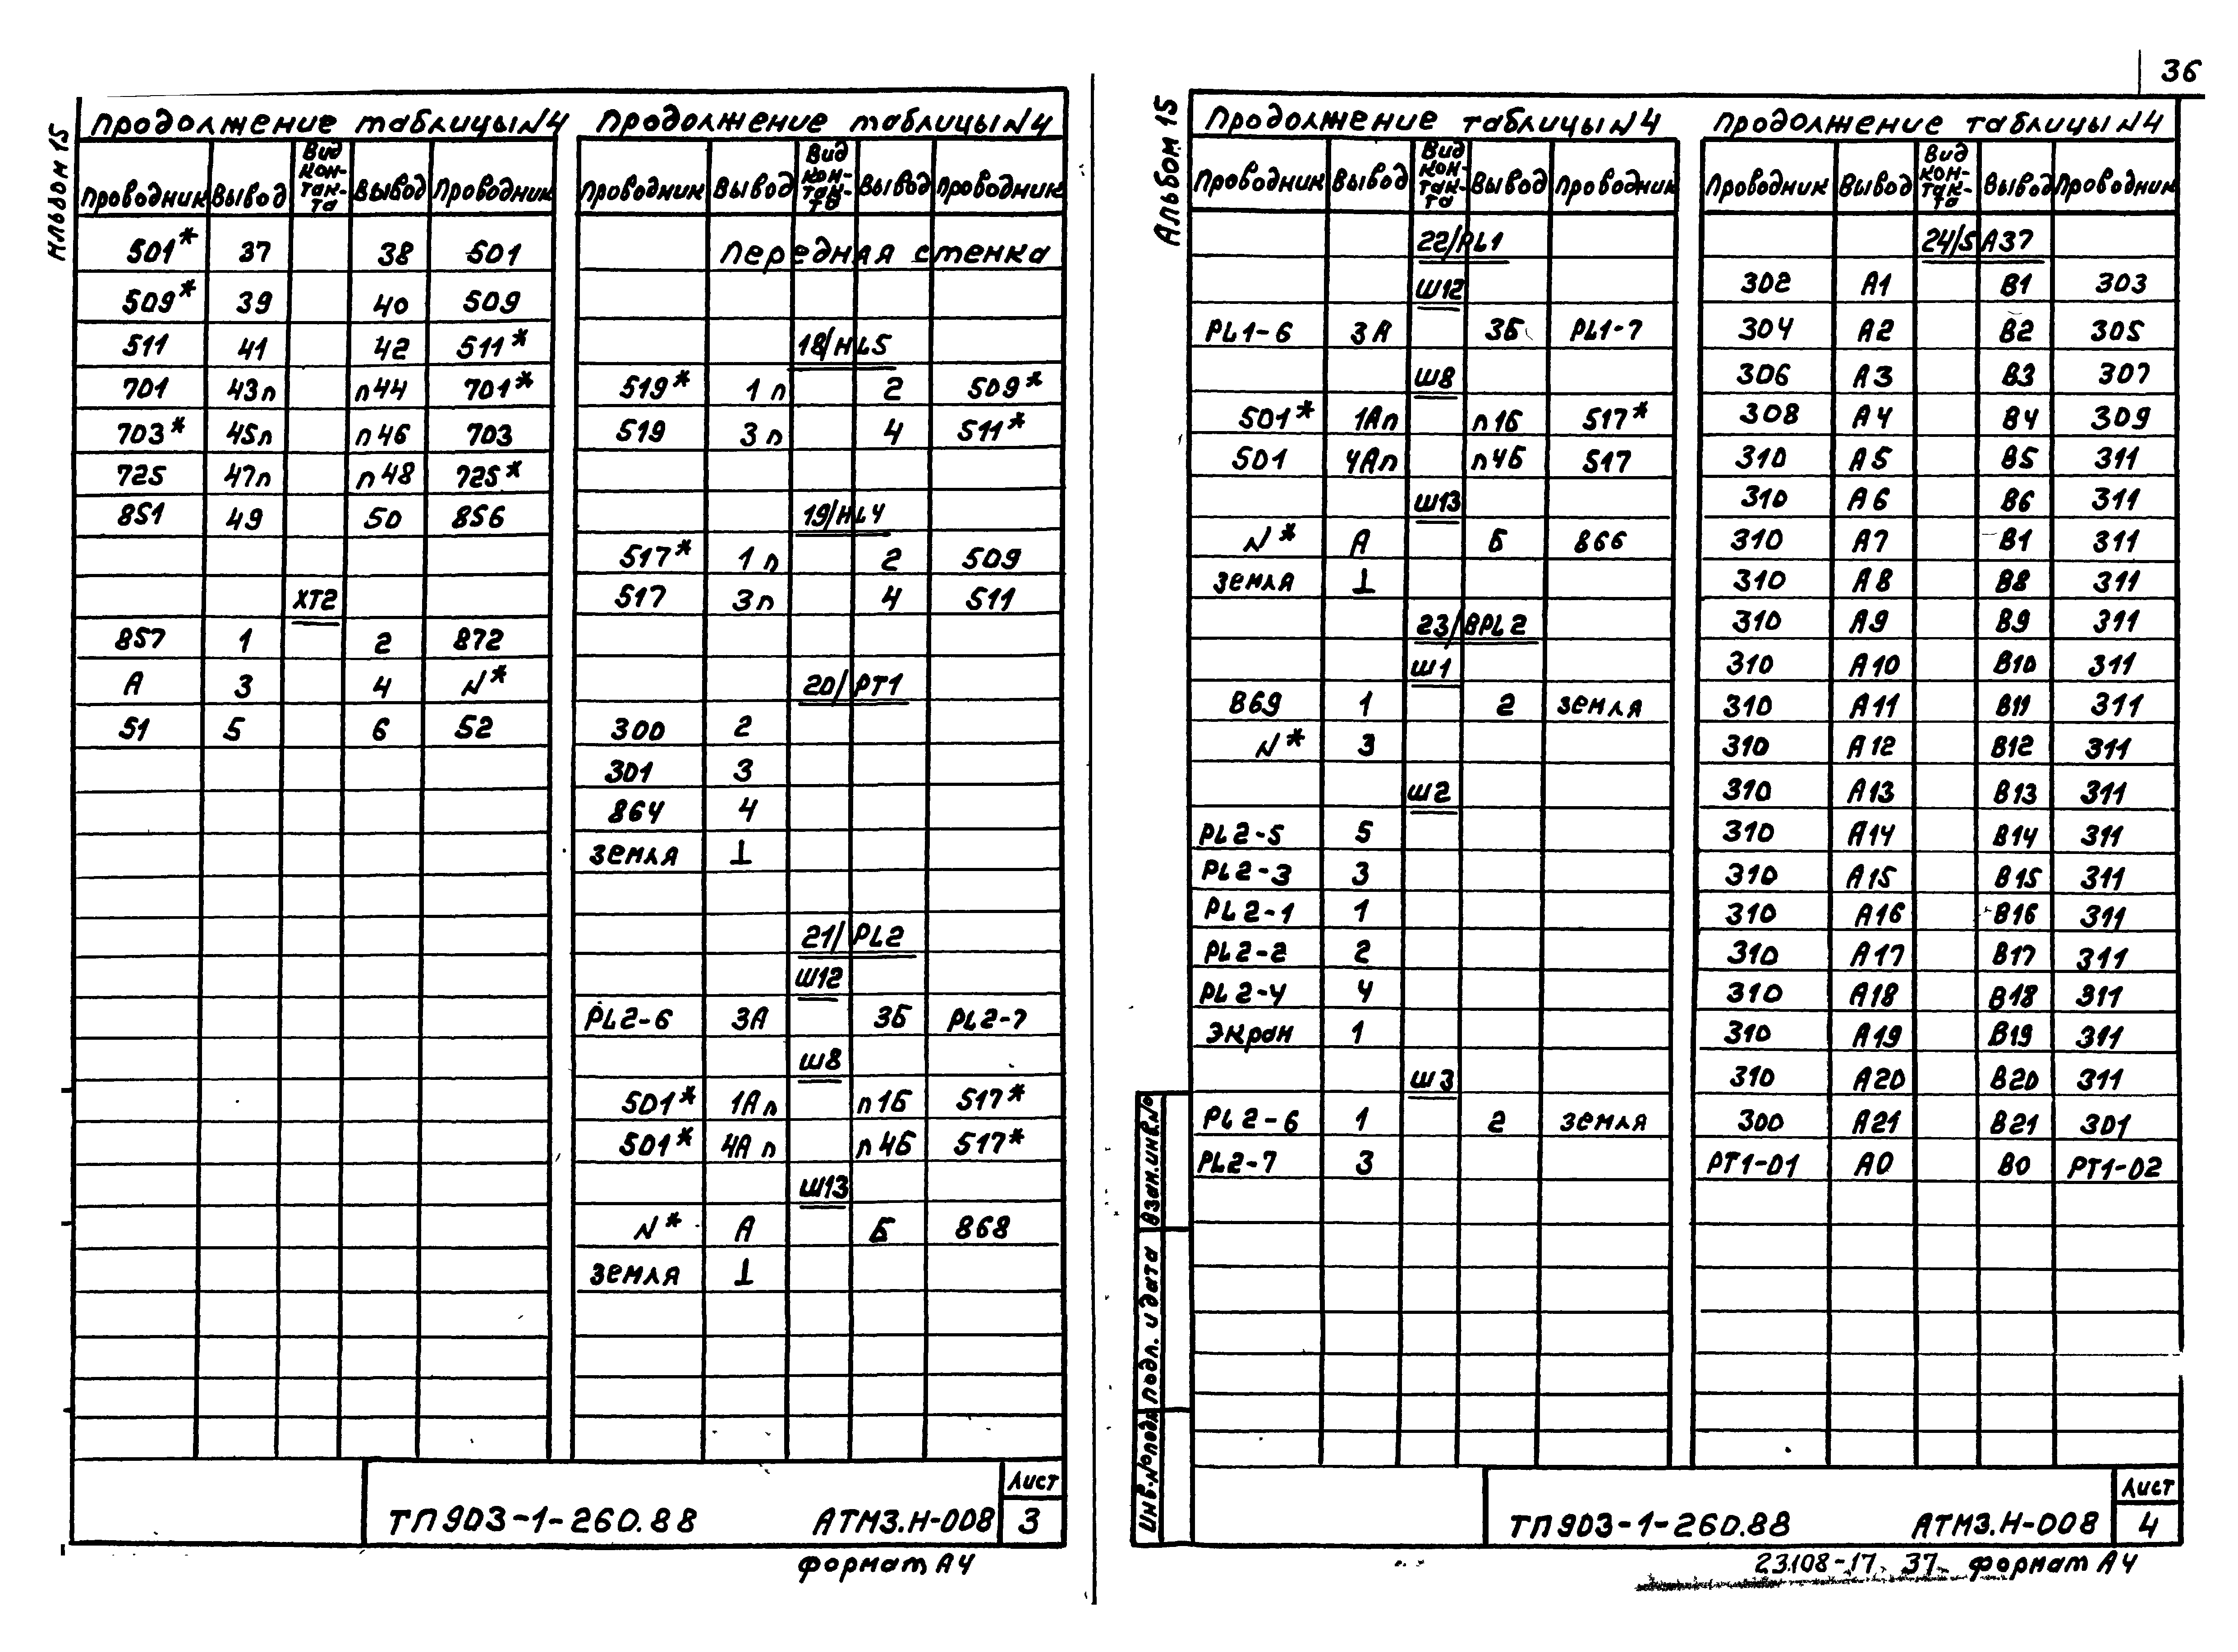 36
Альбом 15
Продолжение таблицы N4
Проводник Вывод Вид кон-так-та Вывод Проводник
501* 37 38 501
509* 39 40 509
511 41 42 511*
701 43п п44 701*
703* 45п п46 703
725 47п п48 725*
851 49 50 856
ХТ2
857 1 2 872
А 3 4 N*
51 5 6 52
Продолжение таблицы N4
Проводник Вывод Вид кон-так-та Вывод Проводник
Передная стенка
18/HL5
519* 1п 2 509*
519 3п 4 511*
19/HL4
517* 1п 2 509
517 3п 4 511
20/РТ1
300 2
301 3
864 4
земля ⊥
21/PL2
Ш12
PL2-6 3А 3Б PL2-7
Ш8
501* 1Ап п1Б 517*
501* 4Ап п4Б 517*
Ш13
N* А Б 868
земля ⊥
ТП903-1-260.88 АТМ3.Н-008
Лист
3
формат А4
Альбом 15
Продолжение таблицы N4
Проводник Вывод Вид кон-так-та Вывод Проводник
22/PL1
Ш12
PL1-6 3А 3Б PL1-7
Ш8
501* 1Ап п1Б 517*
501 4Ап п4Б 517
Ш13
N* А Б 866
земля ⊥
23/BPL2
Ш1
869 1 2 земля
N* 3
Ш2
PL2-5 5
PL2-3 3
PL2-1 1
PL2-2 2
PL2-4 4
Экран 1
Ш3
PL2-6 1 2 земля
PL2-7 3
Продолжение таблицы N4
Проводник Вывод Вид кон-так-та Вывод Проводник
24/SA37
302 А1 В1 303
304 А2 В2 305
306 А3 В3 307
308 А4 В4 309
310 А5 В5 311
310 А6 В6 311
310 А7 В1 311
310 А8 В8 311
310 А9 В9 311
310 А10 В10 311
310 А11 В11 311
310 А12 В12 311
310 А13 В13 311
310 А14 В14 311
310 А15 В15 311
310 А16 В16 311
310 А17 В17 311
310 А18 В18 311
310 А19 В19 311
310 А20 В20 311
300 А21 В21 301
РТ1-01 А0 В0 РТ1-02
Инв.№ подл. Подп. и дата Взам.инв.№
ТП903-1-260.88 АТМ3.Н-008
Лист
4
23108-17 37 формат А4